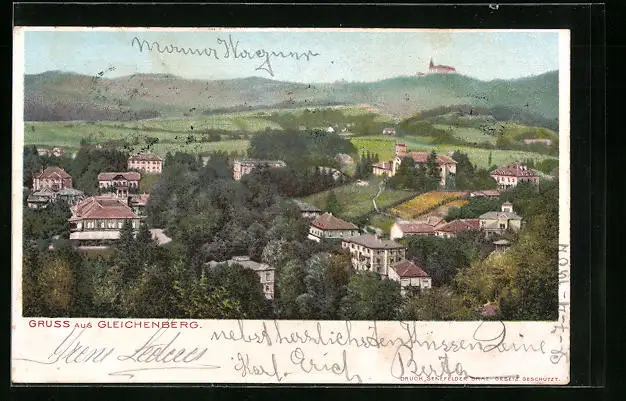 Mama Wagner
GRUSS AUS GLEICHENBERG.
nebst herzlichsten Küssen Deine
Karl. Erich Berta
DRUCK SENEFELDER GRAZ. GESETZ. GESCHÜTZT.